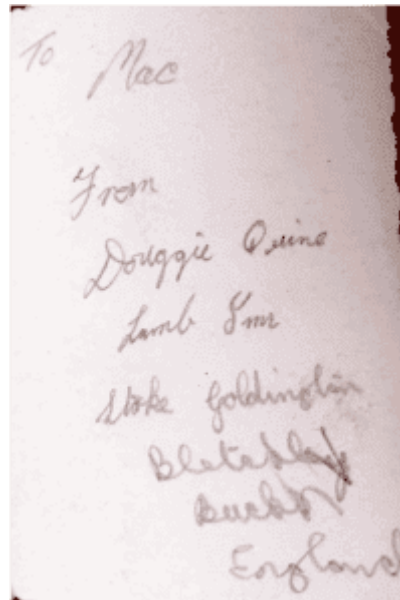 To Mac
From
Douggie Quine
Lamb Inn
Stoke Goldington
Bletchley
Bucks
England